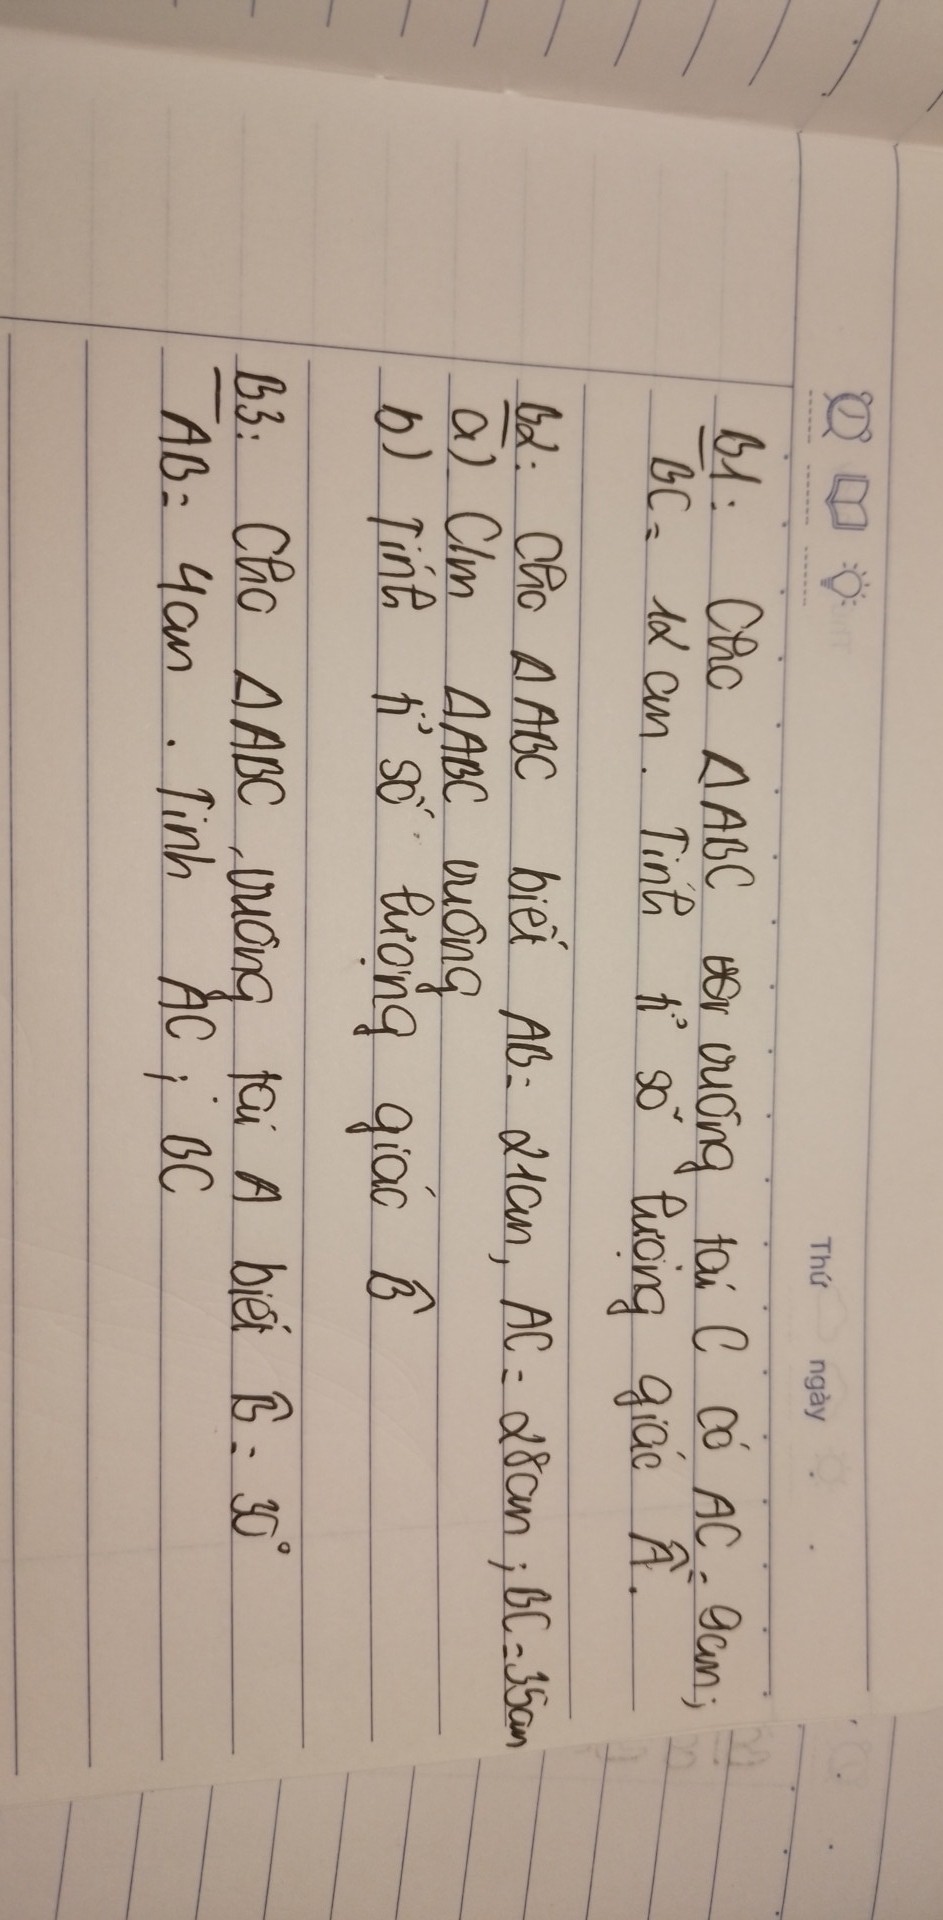 Thứ ngày
B1: Cho ΔABC vuông tại C có AC = 9cm;
BC = 12 cm. Tính tỉ số lượng giác Â.
B2: Cho ΔABC biết AB = 21cm, AC = 28cm; BC = 35cm
a) C/m ΔABC vuông
b) Tính tỉ số lượng giác B̂
B3: Cho ΔABC, vuông tại A biết B̂ = 30°
AB = 4cm. Tính AC; BC